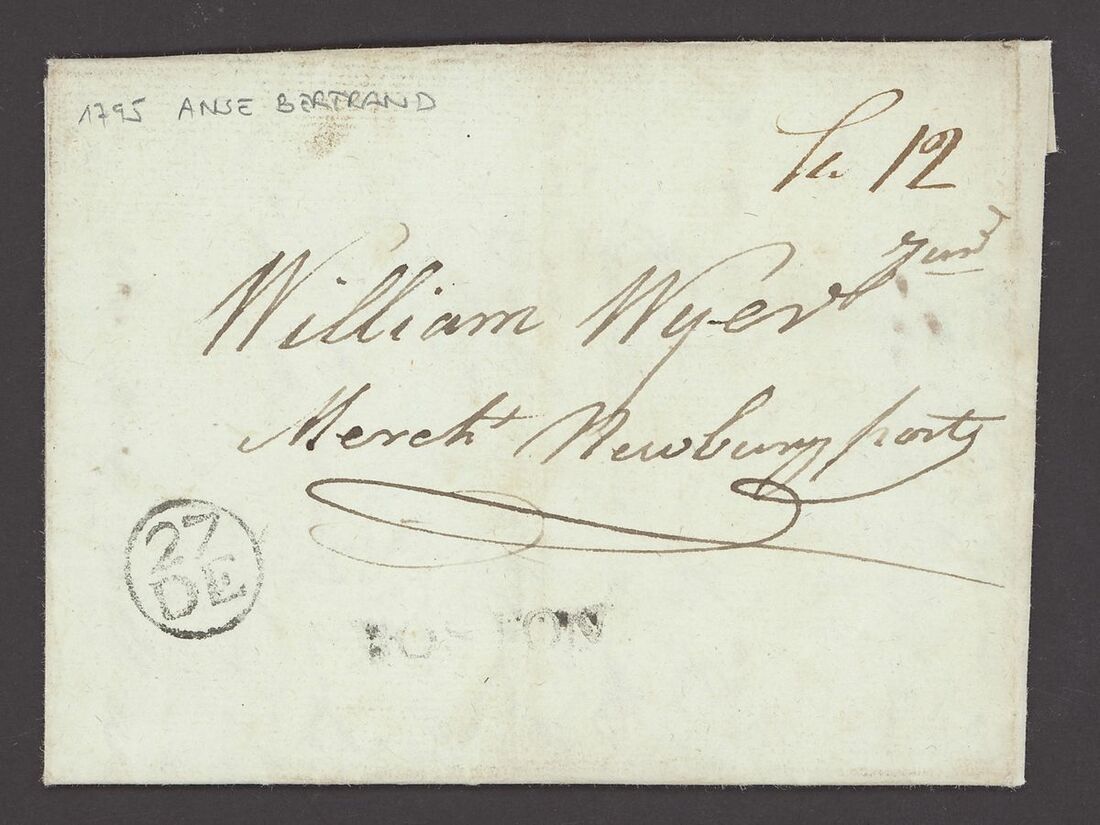 1795 ANSE BERTRAND
12
William Wyer Junr
Mercht Newbury port
27
DE
BOSTON